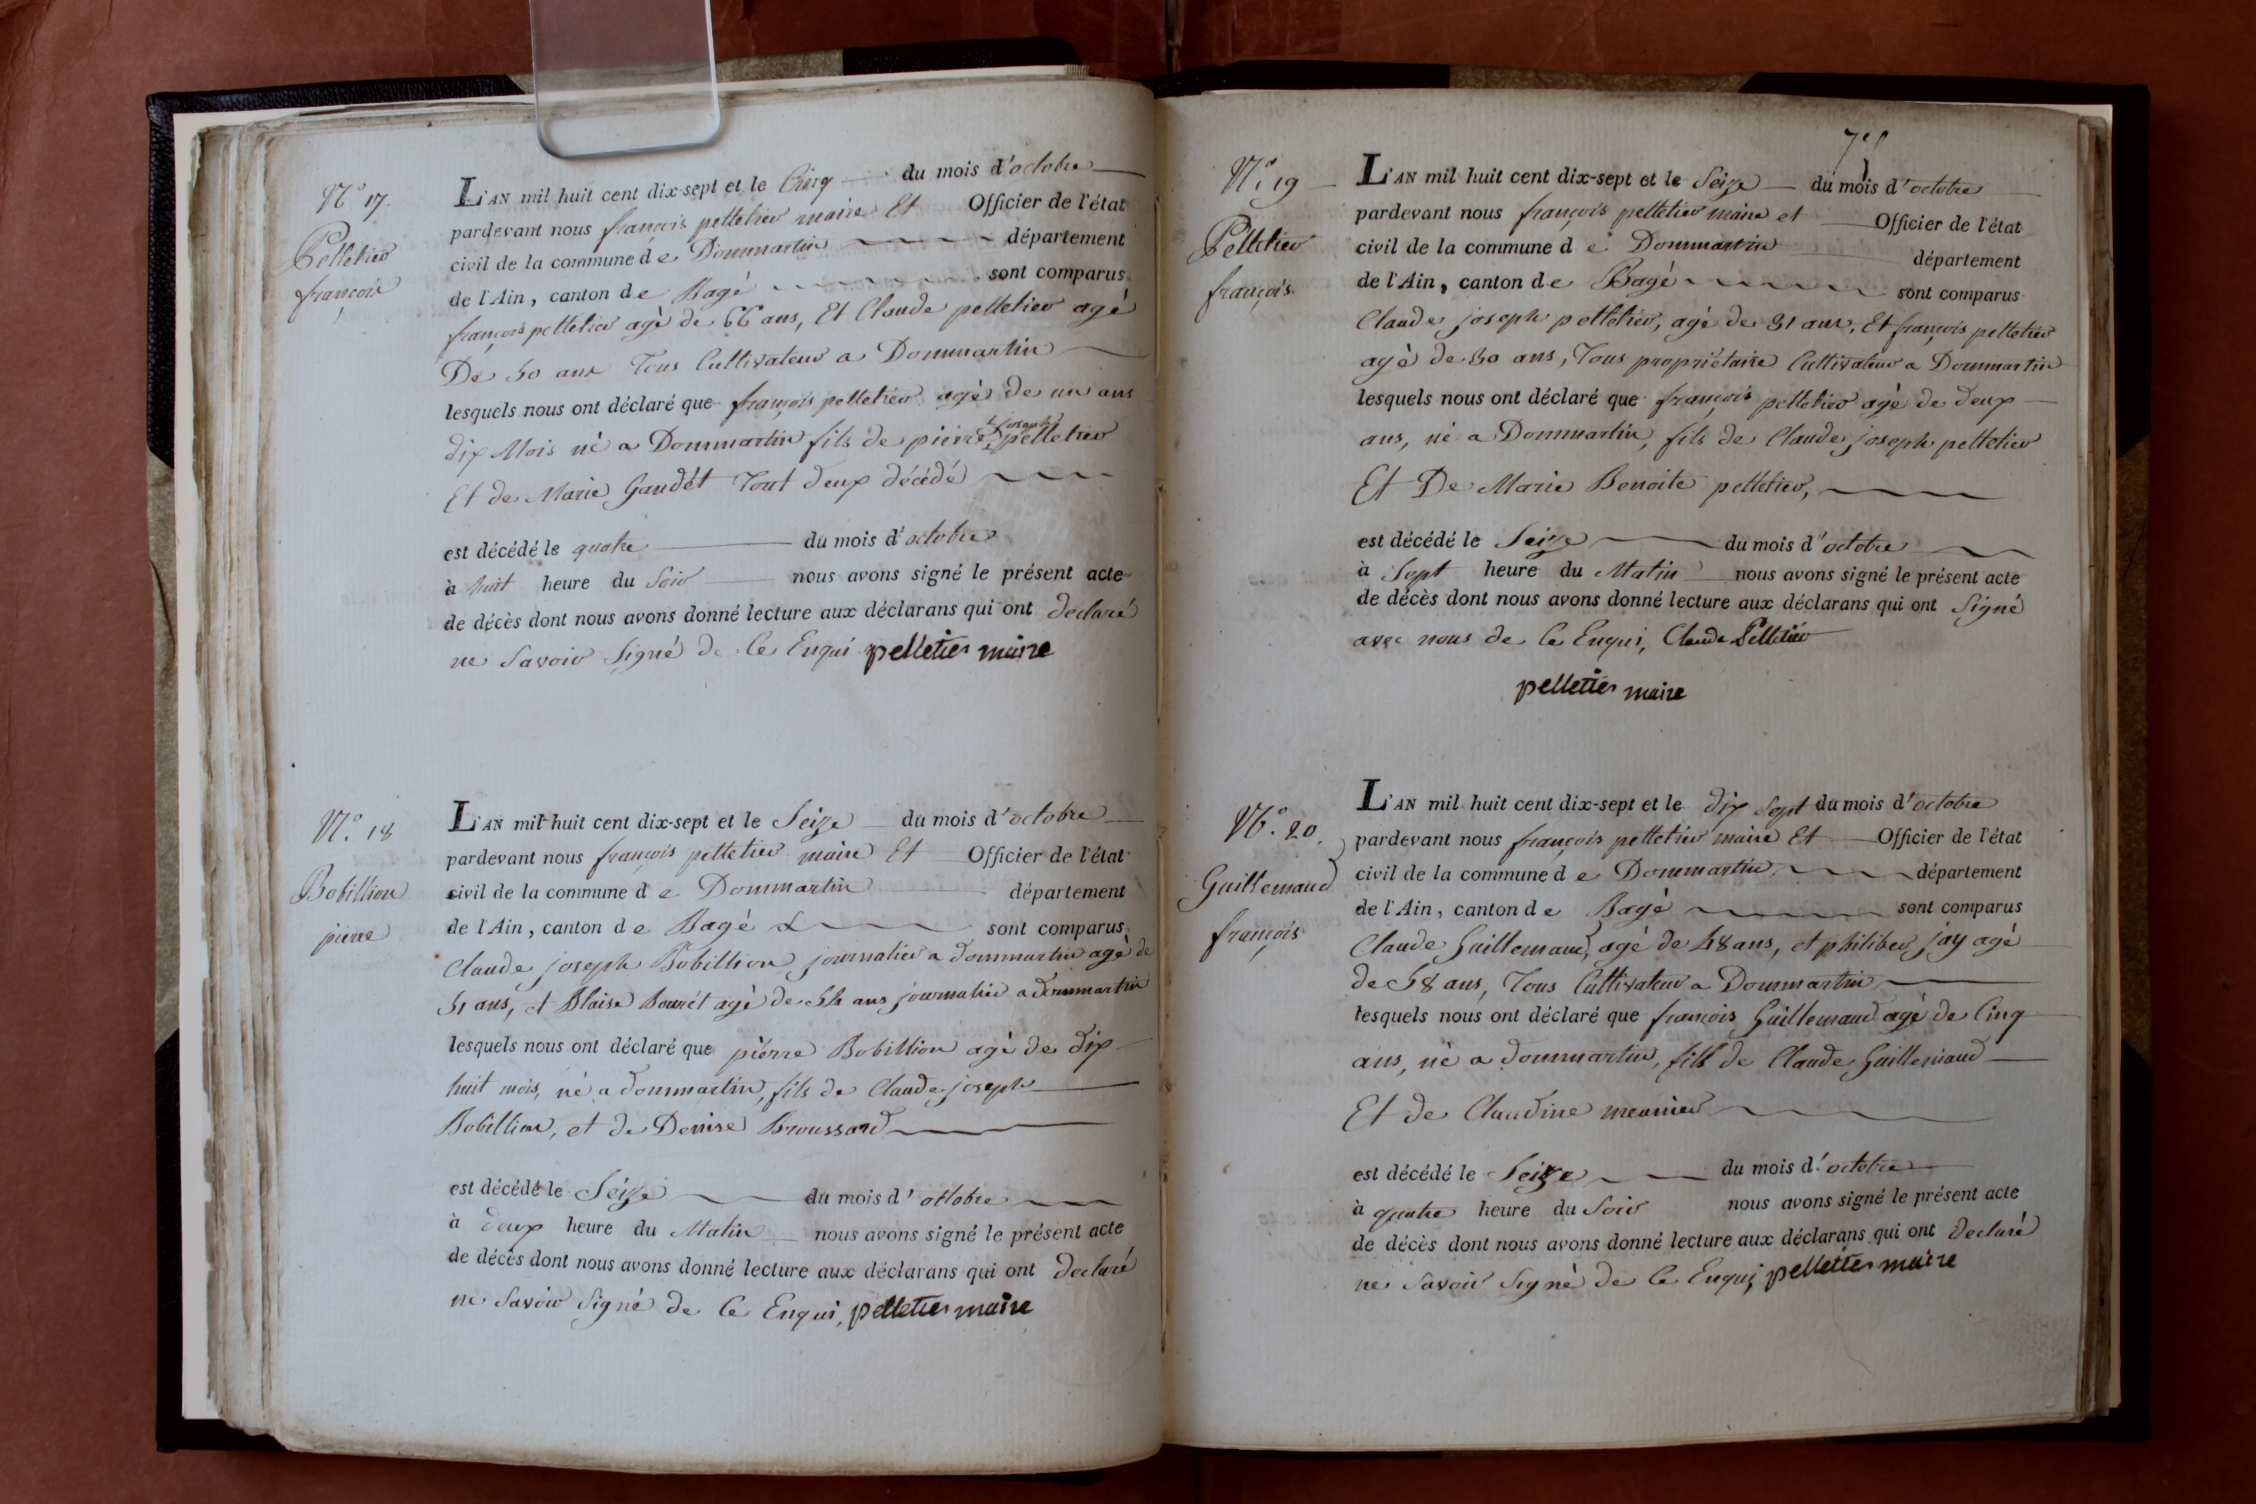 N.° 17.
Pelletier
françois
L'AN mil huit cent dix-sept et le Cinq du mois d'octobre
pardevant nous françois pelletier maire Et Officier de l'état
civil de la commune de Dommartin département
de l'Ain, canton de Bagé sont comparus
françois pelletier agé de 66 ans, Et Claude pelletier agé
De 50 ans Tous Cultivateur a Dommartin
lesquels nous ont déclaré que françois pelletier agé de un ans
dix Mois né a Dommartin fils de pierre joseph pelletier
Et de Marie Gaudét Tout deux décédé
est décédé le quatre du mois d'octobre
à huit heure du Soir nous avons signé le présent acte
de décès dont nous avons donné lecture aux déclarans qui ont declaré
ne Savoir Signé de Ce Enqui pelletier maire
N.° 18
Bobillion
pierre
L'AN mil huit cent dix-sept et le Seize du mois d'octobre
pardevant nous françois pelletier maire Et Officier de l'état
civil de la commune de Dommartin département
de l'Ain, canton de Bagé sont comparus
Claude joseph Bobillion journalier a dommartin agé de
51 ans, et Blaise Bourét agé de 54 ans journalier a dommartin
lesquels nous ont déclaré que piérre Bobillion agé de dix
huit mois, né a dommartin, fils de Claude joseph
Bobillion, et de Denise Broussard
est décédé le Seize du mois d'octobre
à deux heure du Matin nous avons signé le présent acte
de décès dont nous avons donné lecture aux déclarans qui ont declaré
ne Savoir Signé de Ce Enqui, pelletier maire
N.° 19
Pelletier
françois
L'AN mil huit cent dix-sept et le Seize du mois d'octobre
pardevant nous françois pelletier maire et Officier de l'état
civil de la commune de Dommartin département
de l'Ain, canton de Bagé sont comparus
Claude joseph pelletier, agé de 31 ans, Et françois pelletier
agé de 50 ans, Tous propriétaire Cultivateur a Dommartin
lesquels nous ont déclaré que françois pelletier agé de deux
ans, né a Dommartin, fils de Claude joseph pelletier
Et De Marie Benoite pelletier,
est décédé le Seize du mois d'octobre
à Sept heure du Matin nous avons signé le présent acte
de décès dont nous avons donné lecture aux déclarans qui ont Signé
avec nous de Ce Enqui, Claude Pelletier
pelletier maire
N.° 20.
Guillemaud
françois
L'AN mil huit cent dix-sept et le dix Sept du mois d'octobre
pardevant nous françois pelletier maire Et Officier de l'état
civil de la commune de Dommartin département
de l'Ain, canton de Bagé sont comparus
Claude Guillemaud, agé de 48 ans, et philiber jay agé
de 58 ans, Tous Cultivateur a Dommartin
lesquels nous ont déclaré que francois Guillemaud agé de Cinq
ans, né a dommartin, fils de Claude Guillemaud
Et de Claudine meunier
est décédé le Seize du mois d'octobre
à quatre heure du Soir nous avons signé le présent acte
de décès dont nous avons donné lecture aux déclarans qui ont declaré
ne Savoir Signé de Ce Enqui, pelletier maire